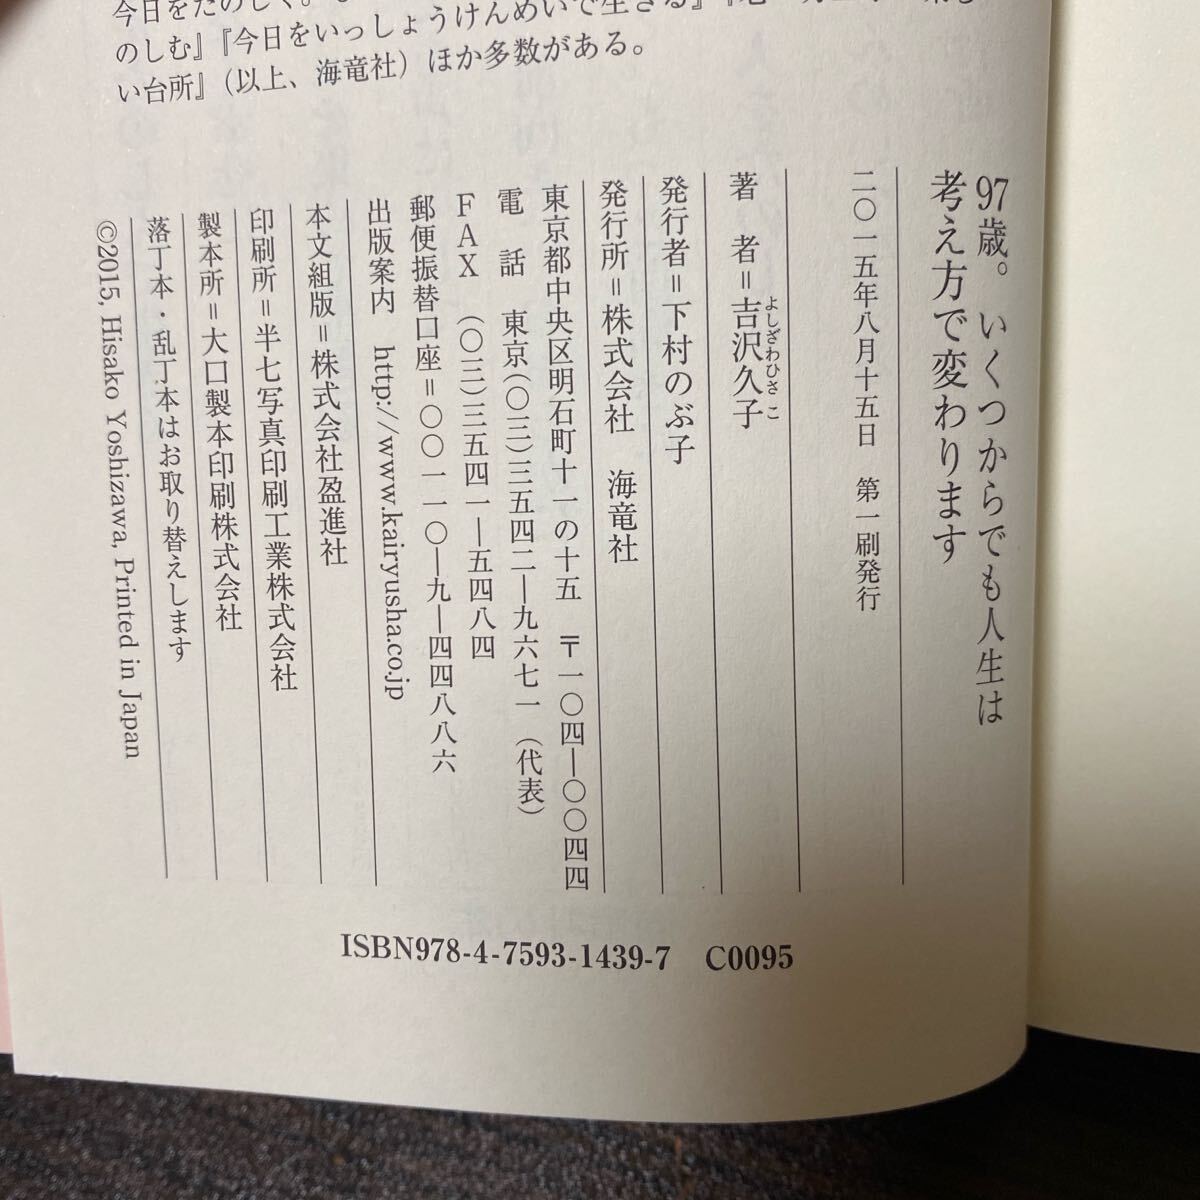 今日をたのしく。
のしむ』『今日をいっしょうけんめいで生きる』
い台所』(以上、海竜社)ほか多数がある。
97歳。いくつからでも人生は
考え方で変わります
二〇一五年八月十五日 第一刷発行
著 者=吉沢久子
よしざわひさこ
発行者=下村のぶ子
発行所=株式会社 海竜社
東京都中央区明石町十一の十五 〒一〇四―〇〇四四
電 話 東京(〇三)三五四二―九六七一(代表)
FAX (〇三)三五四一―五四八四
郵便振替口座=〇〇一一〇―九―四四八八六
出版案内 http://www.kairyusha.co.jp
本文組版=株式会社盈進社
印刷所=半七写真印刷工業株式会社
製本所=大口製本印刷株式会社
落丁本・乱丁本はお取り替えします
©2015, Hisako Yoshizawa, Printed in Japan
ISBN978-4-7593-1439-7 C0095